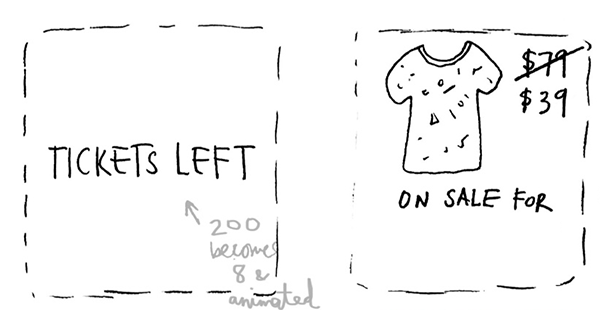 TICKETS LEFT
200
becomes
8 &
animated
$79
$39
ON SALE FOR